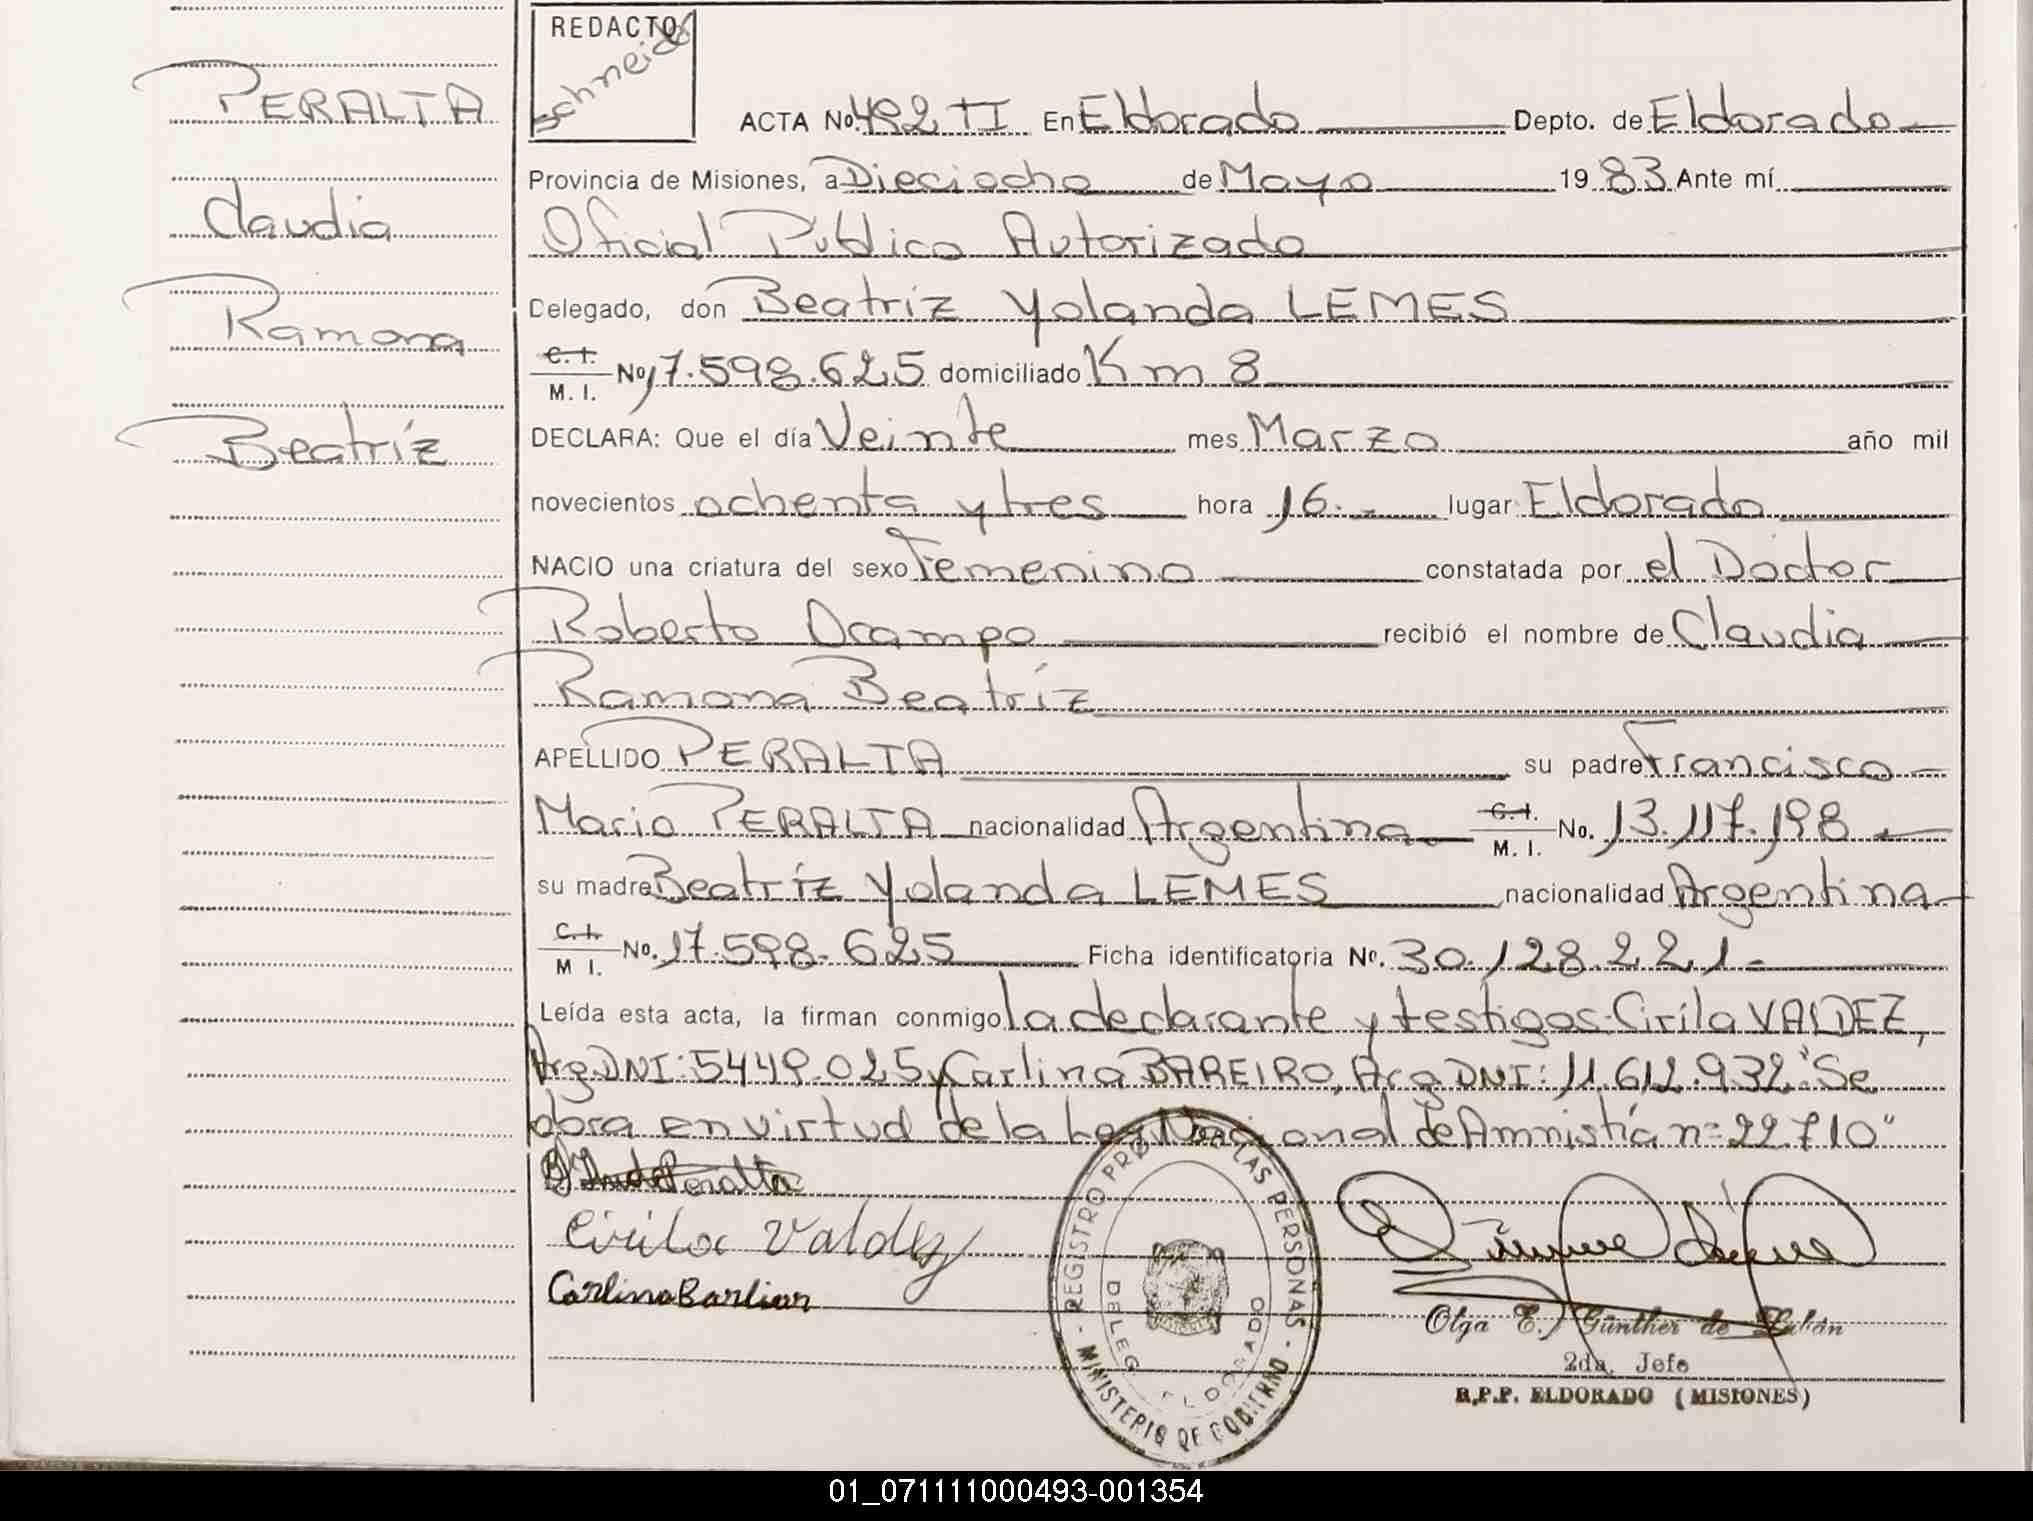 REDACTO
Schneider
PERALTA
Claudia
Ramona
Beatríz
ACTA No. 492 TI En Eldorado Depto. de Eldorado
Provincia de Misiones, a Dieciocho de Mayo 19 83 Ante mí
Oficial Publico Autorizado
Delegado, don Beatríz Yolanda LEMES
C. I. / M. I. No. 17.598.625 domiciliado Km 8
DECLARA: Que el día Veinte mes Marzo año mil
novecientos ochenta y tres hora 16.- lugar Eldorado
NACIO una criatura del sexo Femenino constatada por el Doctor
Roberto Ocampo recibió el nombre de Claudia
Ramona Beatríz
APELLIDO PERALTA su padre Francisco
Mario PERALTA nacionalidad Argentina C. I. / M. I. No. 13.117.198
su madre Beatríz Yolanda LEMES nacionalidad Argentina
C. I. / M I. No. 17.598.625 Ficha identificatoria Nº. 30.128.221.-
Leída esta acta, la firman conmigo la declarante y testigos: Cirila VALDEZ,
Arg. DNI: 5449.025 y Carlina BAREIRO, Arg DNI: 11.612.932. "Se
obra en virtud de la Ley Nacional de Amnistía nº 22710"
Peralta
Cirila Valdez
Carlina Bareiro
REGISTRO PROV. DE LAS PERSONAS - MINISTERIO DE GOBIERNO -
DELEG ELDORADO
Olga E. Günther de
2da. Jefe
R.P.P. ELDORADO (MISIONES)
01_071111000493-001354